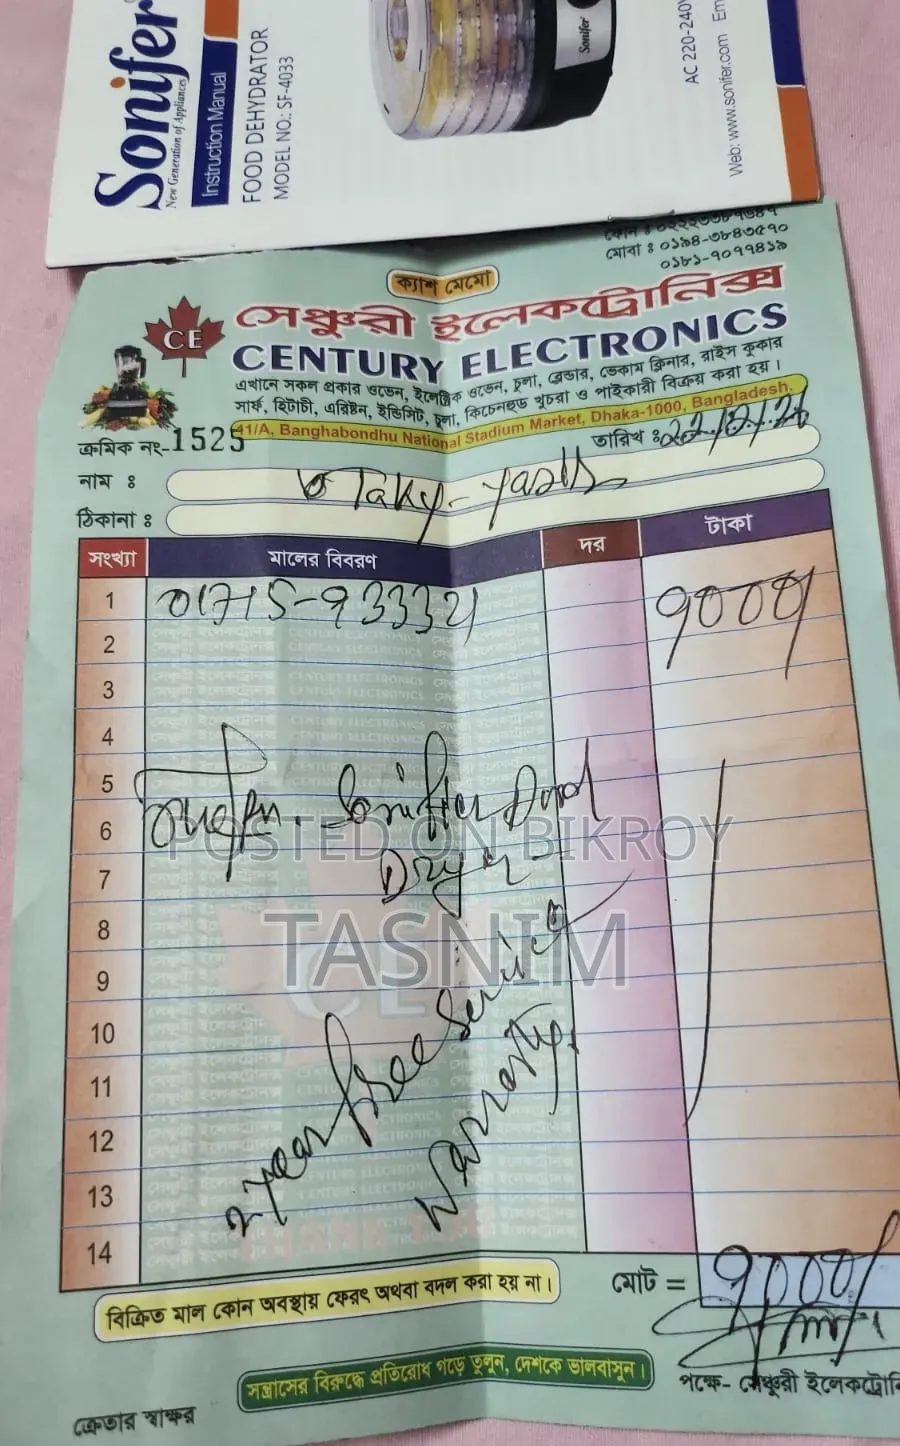 Sonifer
New Generation of Appliances
Instruction Manual
FOOD DEHYDRATOR
MODEL NO.: SF-4033
Sonifer
AC 220-240V
Web: www.sonifer.com Em
মোবা : ০১৯৪-৩৮৪৩৫৭০
০১৮১-৭০৭৭৪১৯
ক্যাশ মেমো
CE
সেঞ্চুরী ইলেকট্রোনিক্স
CENTURY ELECTRONICS
এখানে সকল প্রকার ওভেন, ইলেকট্রিক ওভেন, চুলা, ব্লেন্ডার, ভেকাম ক্লিনার, রাইস কুকার
সার্ফ, হিটাচী, এরিষ্টন, ইন্ডিসিট, চুলা, কিচেনহুড খুচরা ও পাইকারী বিক্রয় করা হয়।
41/A, Banghabondhu National Stadium Market, Dhaka-1000, Bangladesh.
ক্রমিক নং-1525 তারিখ :
নাম :
ঠিকানা :
সংখ্যা মালের বিবরণ দর টাকা
1 ৭০০০/
2
3
4
5
6 Dryer
7
8
9
10
11
12
13
14
2 year free service
warranty
POSTED ON BIKROY
TASNIM
মোট = ৭০০০/
বিক্রিত মাল কোন অবস্থায় ফেরৎ অথবা বদল করা হয় না।
সন্ত্রাসের বিরুদ্ধে প্রতিরোধ গড়ে তুলুন, দেশকে ভালবাসুন।
পক্ষে- সেঞ্চুরী ইলেকট্রোনি
ক্রেতার স্বাক্ষর